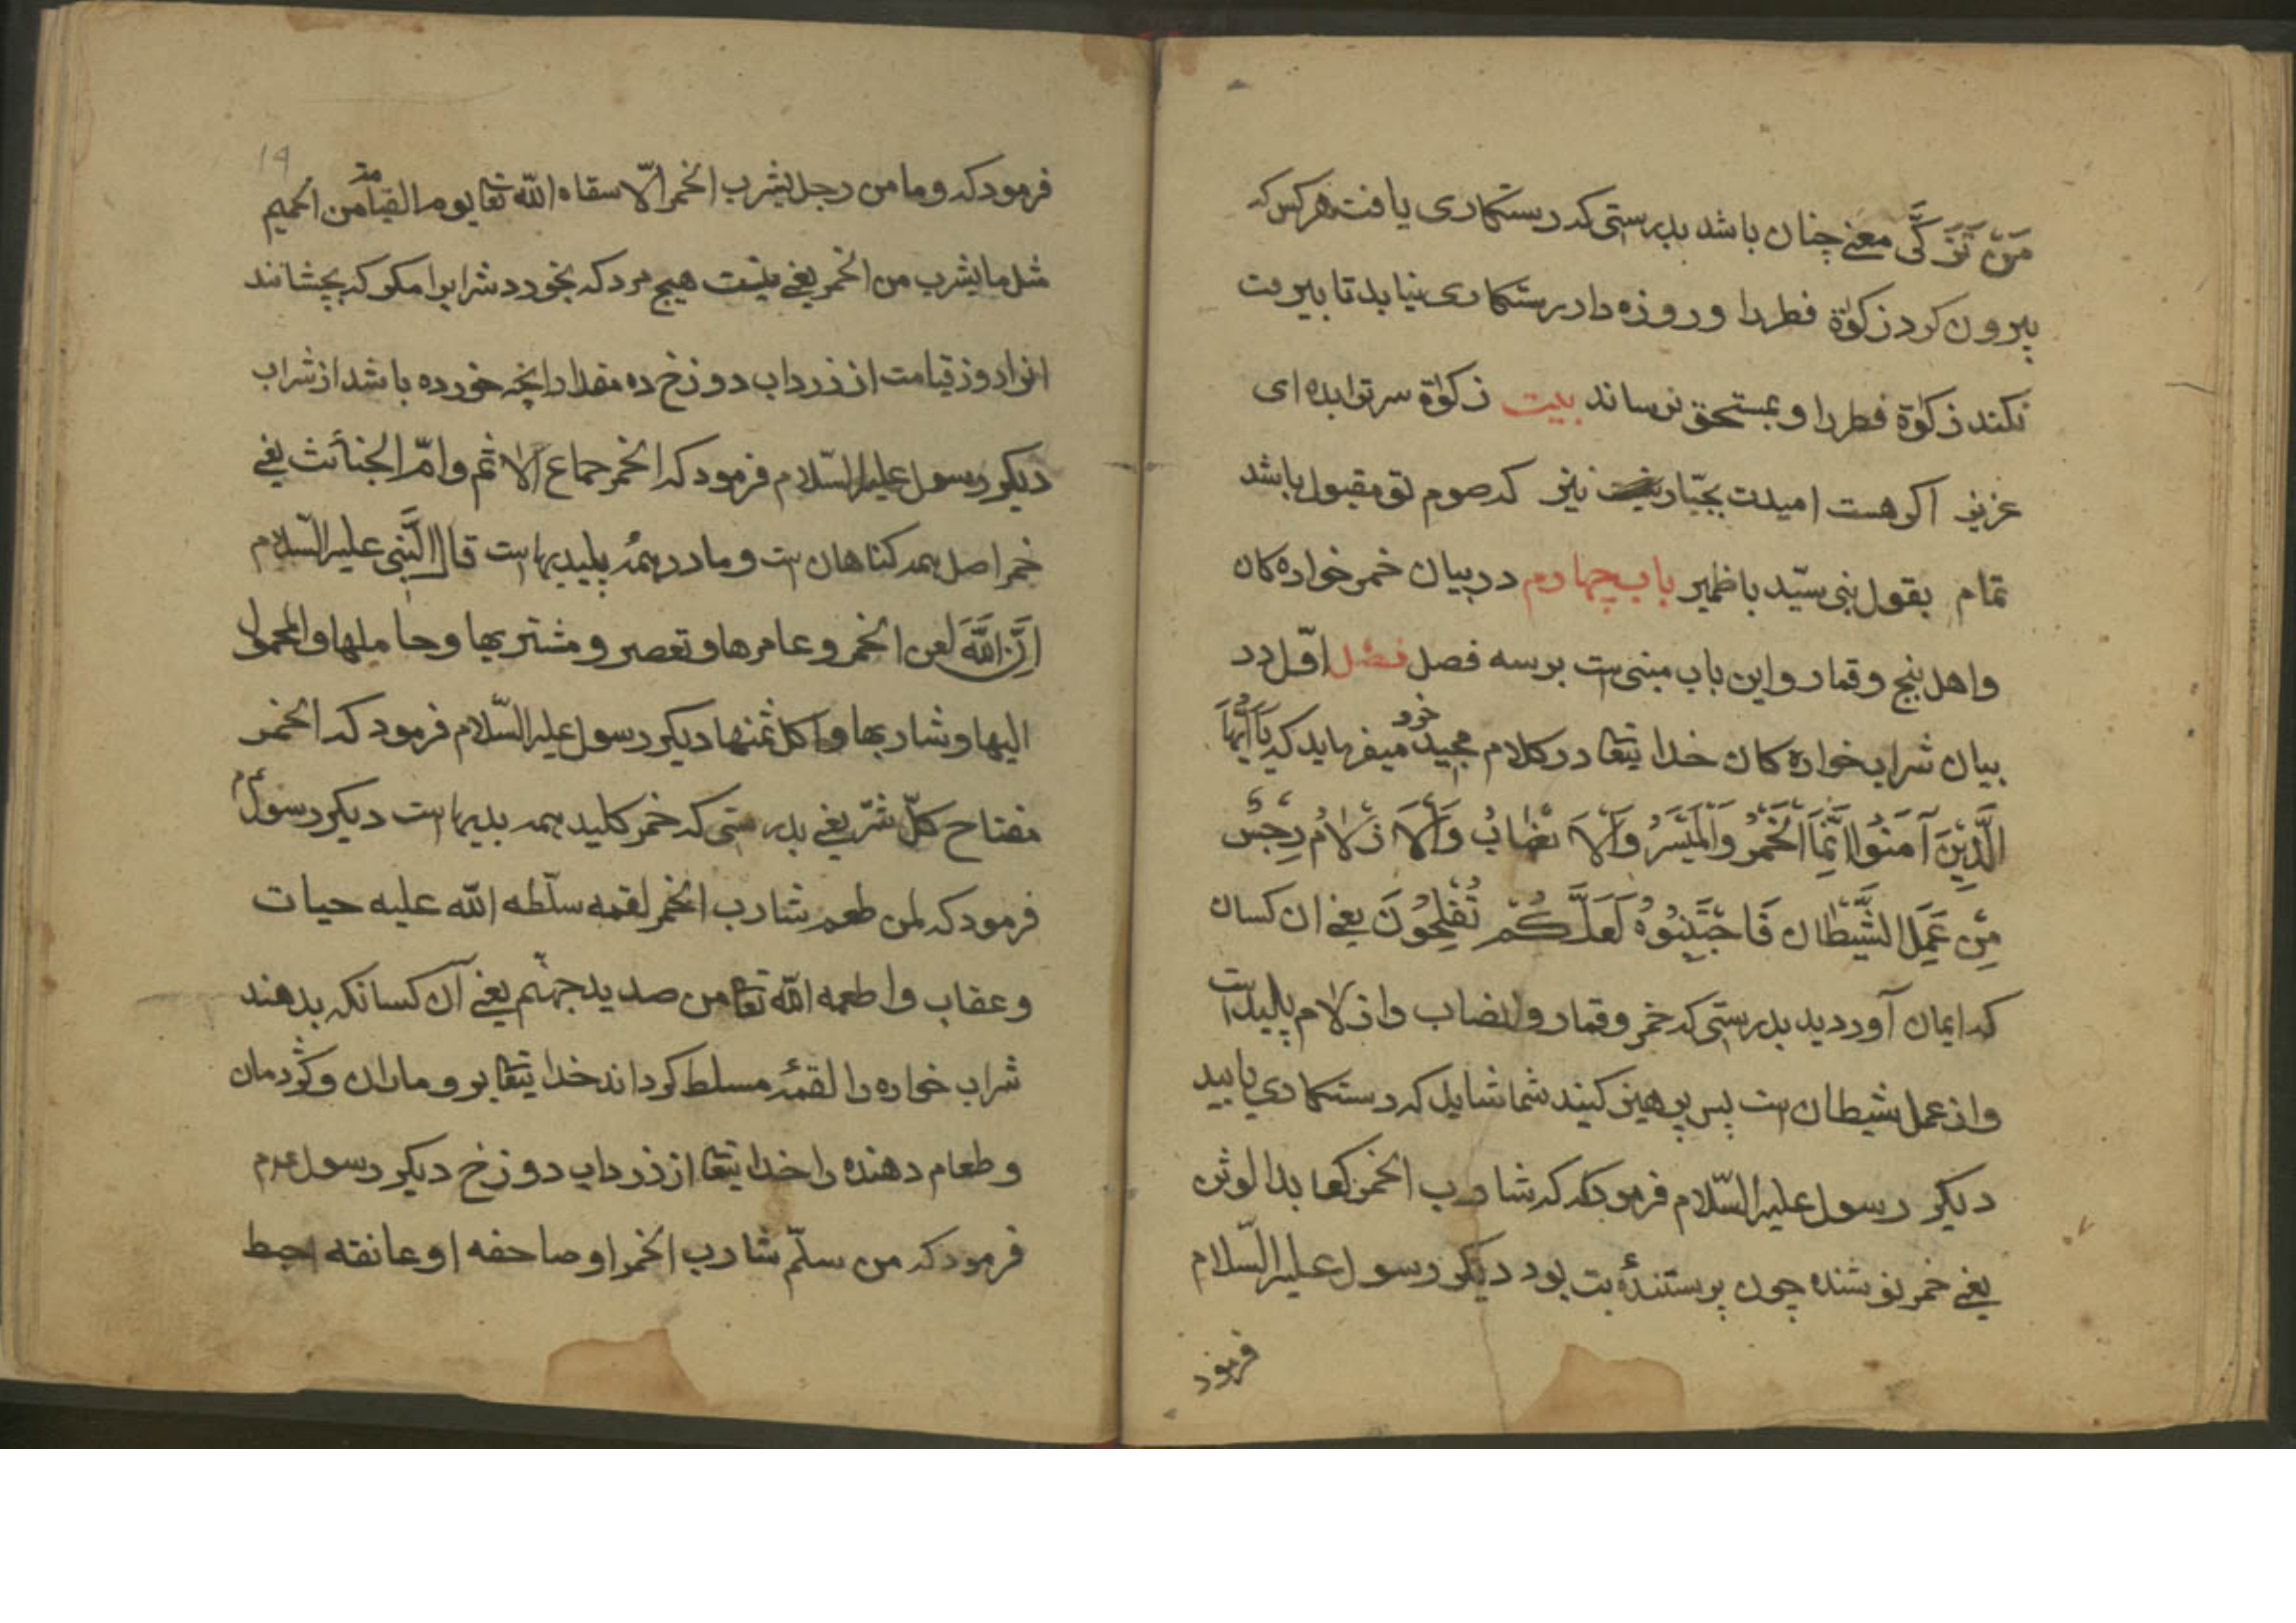 مَنْ تَزَكَّى معنی چنان باشد بدرستی که رستکاری یافت هرکس که
بیرون کرد زکوة فطر را و روزه دار رستکاری نیابد تا بیرون
نکند زکوة فطر را و بمستحق نرساند بیت زکوة سر تو ابده ای
عزیز اکر هست امیدت بجبار نیز که صوم تو مقبول باشد
تمام بقول نبی سید باظهیر باب چهارم در بیان خمر خواره کان
و اهل بنج و قمار و این باب مبنی است بر سه فصل فصل اول در
بیان شراب خواره کان خدا یتعا در کلام مجید خود میفرماید که یَا اَیُّهَا
الَّذِینَ آمَنُوا اِنَّمَا الْخَمْرُ وَالْمَیْسَرُ وَالْاَنْصَابُ وَالْاَزْلَامُ رِجْسٌ
مِنْ عَمَلِ الشَّیْطَانِ فَاجْتَنِبُوهُ لَعَلَّکُمْ تُفْلِحُونَ یعنی ان کسان
که ایمان آوردید بدرستی که خمر و قمار و انضاب و ازلام پلید است
و از عمل شیطان است پس پرهیز کنید شما شاید که رستکاری یابید
دیکر رسول علیه السلام فرمود که که شارب الخمر کعابد الوثن
یعنی خمر نوشنده چون پرستندهٔ بت بود دیکر رسول علیه السلام
فرمود
۱۹
فرمود که و ما من رجل یشرب الخمر الّا سقاه الله تعا یوم القیامة من الحمیم
مثل ما یشرب من الخمر یعنی نیست هیچ مرد که بخورد شراب را مکر که بچشانند
انرا روز قیامت از زرداب دوزخ ده مقدار انچه خورده باشد از شراب
دیکر رسول علیه السلام فرمود که الخمر جماع الاثم و امّ الخبائث یعنی
خمر اصل همه کناهان ست و مادر همهٔ پلیدیها است قال النَّبی علیه السلام
اِنَّ اللّٰهَ لعن الخمر و عامرها و تعصر و مشتریها و حاملها و المحمول
الیها و شاربها و اکل ثمنها دیکر رسول علیه السلام فرمود که الخمر
مفتاح کلّ شرّ یعنی بدرستی که خمر کلید همه بدیها است دیکر رسول عم
فرمود که لمن طعم شارب الخمر لقمه سلّطه الله علیه حیات
و عقاب و اطعمه الله تعا من صدید جهنّم یعنی آن کسانکه بدهند
شراب خواره را لقمهٔ مسلط کرداند خدا یتعا برو ماران و کژدمان
و طعام دهنده را خدا یتعا از زرداب دوزخ دیکر رسول عم
فرمود که من سلّم شارب الخمر او صاحفه او عانقه احبط